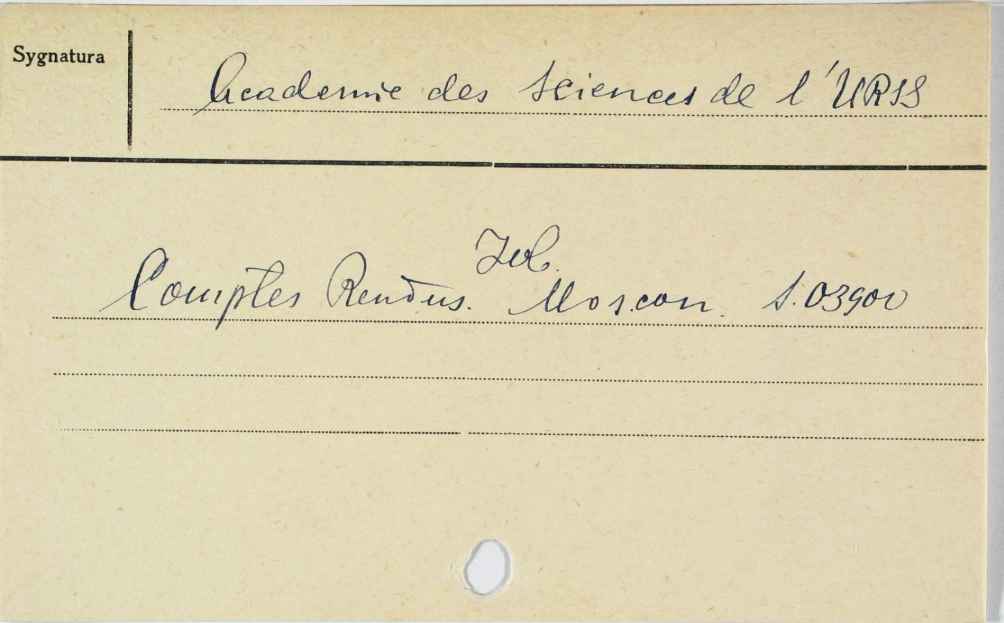 Sygnatura
Academie des Sciences de l'URSS
Comptes Rendus. Moscou. S. 03900